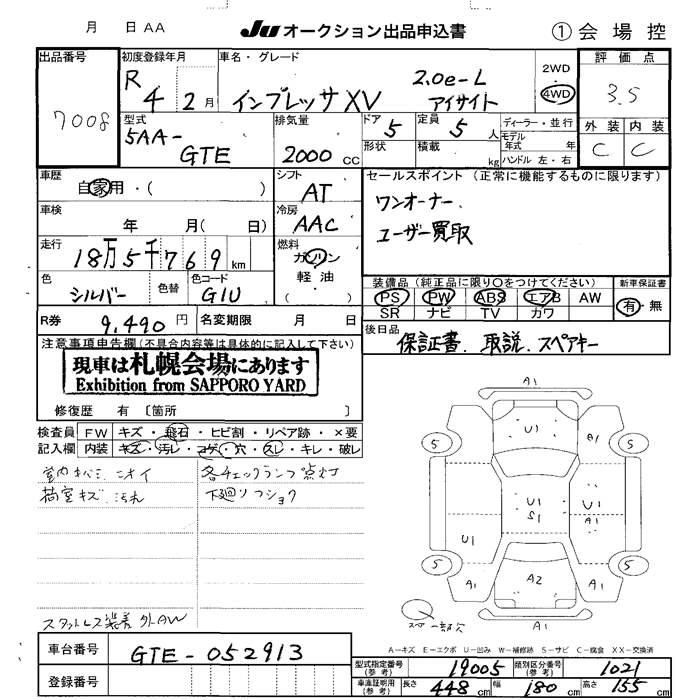 月 日 AA
JU オークション出品申込書
① 会場控
出品番号
7008
初度登録年月
R 4 2月
車名・グレード
インプレッサ XV 2.0e-L アイサイト
2WD
4WD
評価点
3.5
外装 内装
C C
型式
5AA-GTE
排気量
2000 CC
ドア 5
形状
定員 5 人
積載 kg
ディーラー・並行
モデル年式 年
ハンドル 左・右
車歴
自家用・( )
シフト
AT
セールスポイント (正常に機能するものに限ります)
ワンオーナー
ユーザー買取
車検
年 月( 日)
冷房
AAC
走行
18万5千769km
燃料
ガソリン
軽油
( )
色
シルバー
色替
色コード
G1U
装備品 (純正品に限り○をつけてください)
PS PW ABS エアB AW
SR ナビ TV カワ
新車保証書
有・無
R券 9,490円
名変期限 月 日
後日品
保証書. 取説. スペアキー
注意事項申告欄 (不具合内容等は具体的に記入して下さい)
現車は札幌会場にあります
Exhibition from SAPPORO YARD
修復歴 有 〔箇所 〕
検査員記入欄
FW キズ・飛石・ヒビ割・リペア跡・×要
内装 キズ・汚レ・コゲ・穴・スレ・キレ・破レ
ニオイ
荷室キズ 汚れ
各チェックランプ点灯
スタットレス装着 外AW
A1
U1
A1
5
5
U1
S1
U1
A1
U1
5
5
A1
A2
A1
A1
A－キズ E－エクボ U－凹み W－補修跡 S－サビ C－腐食 XX－交換済
車台番号
GTE-052913
登録番号
型式指定番号(参考) 19005
類別区分番号(参考) 1021
車庫証明用(参考) 長さ 448cm 幅 180cm 高さ 155cm